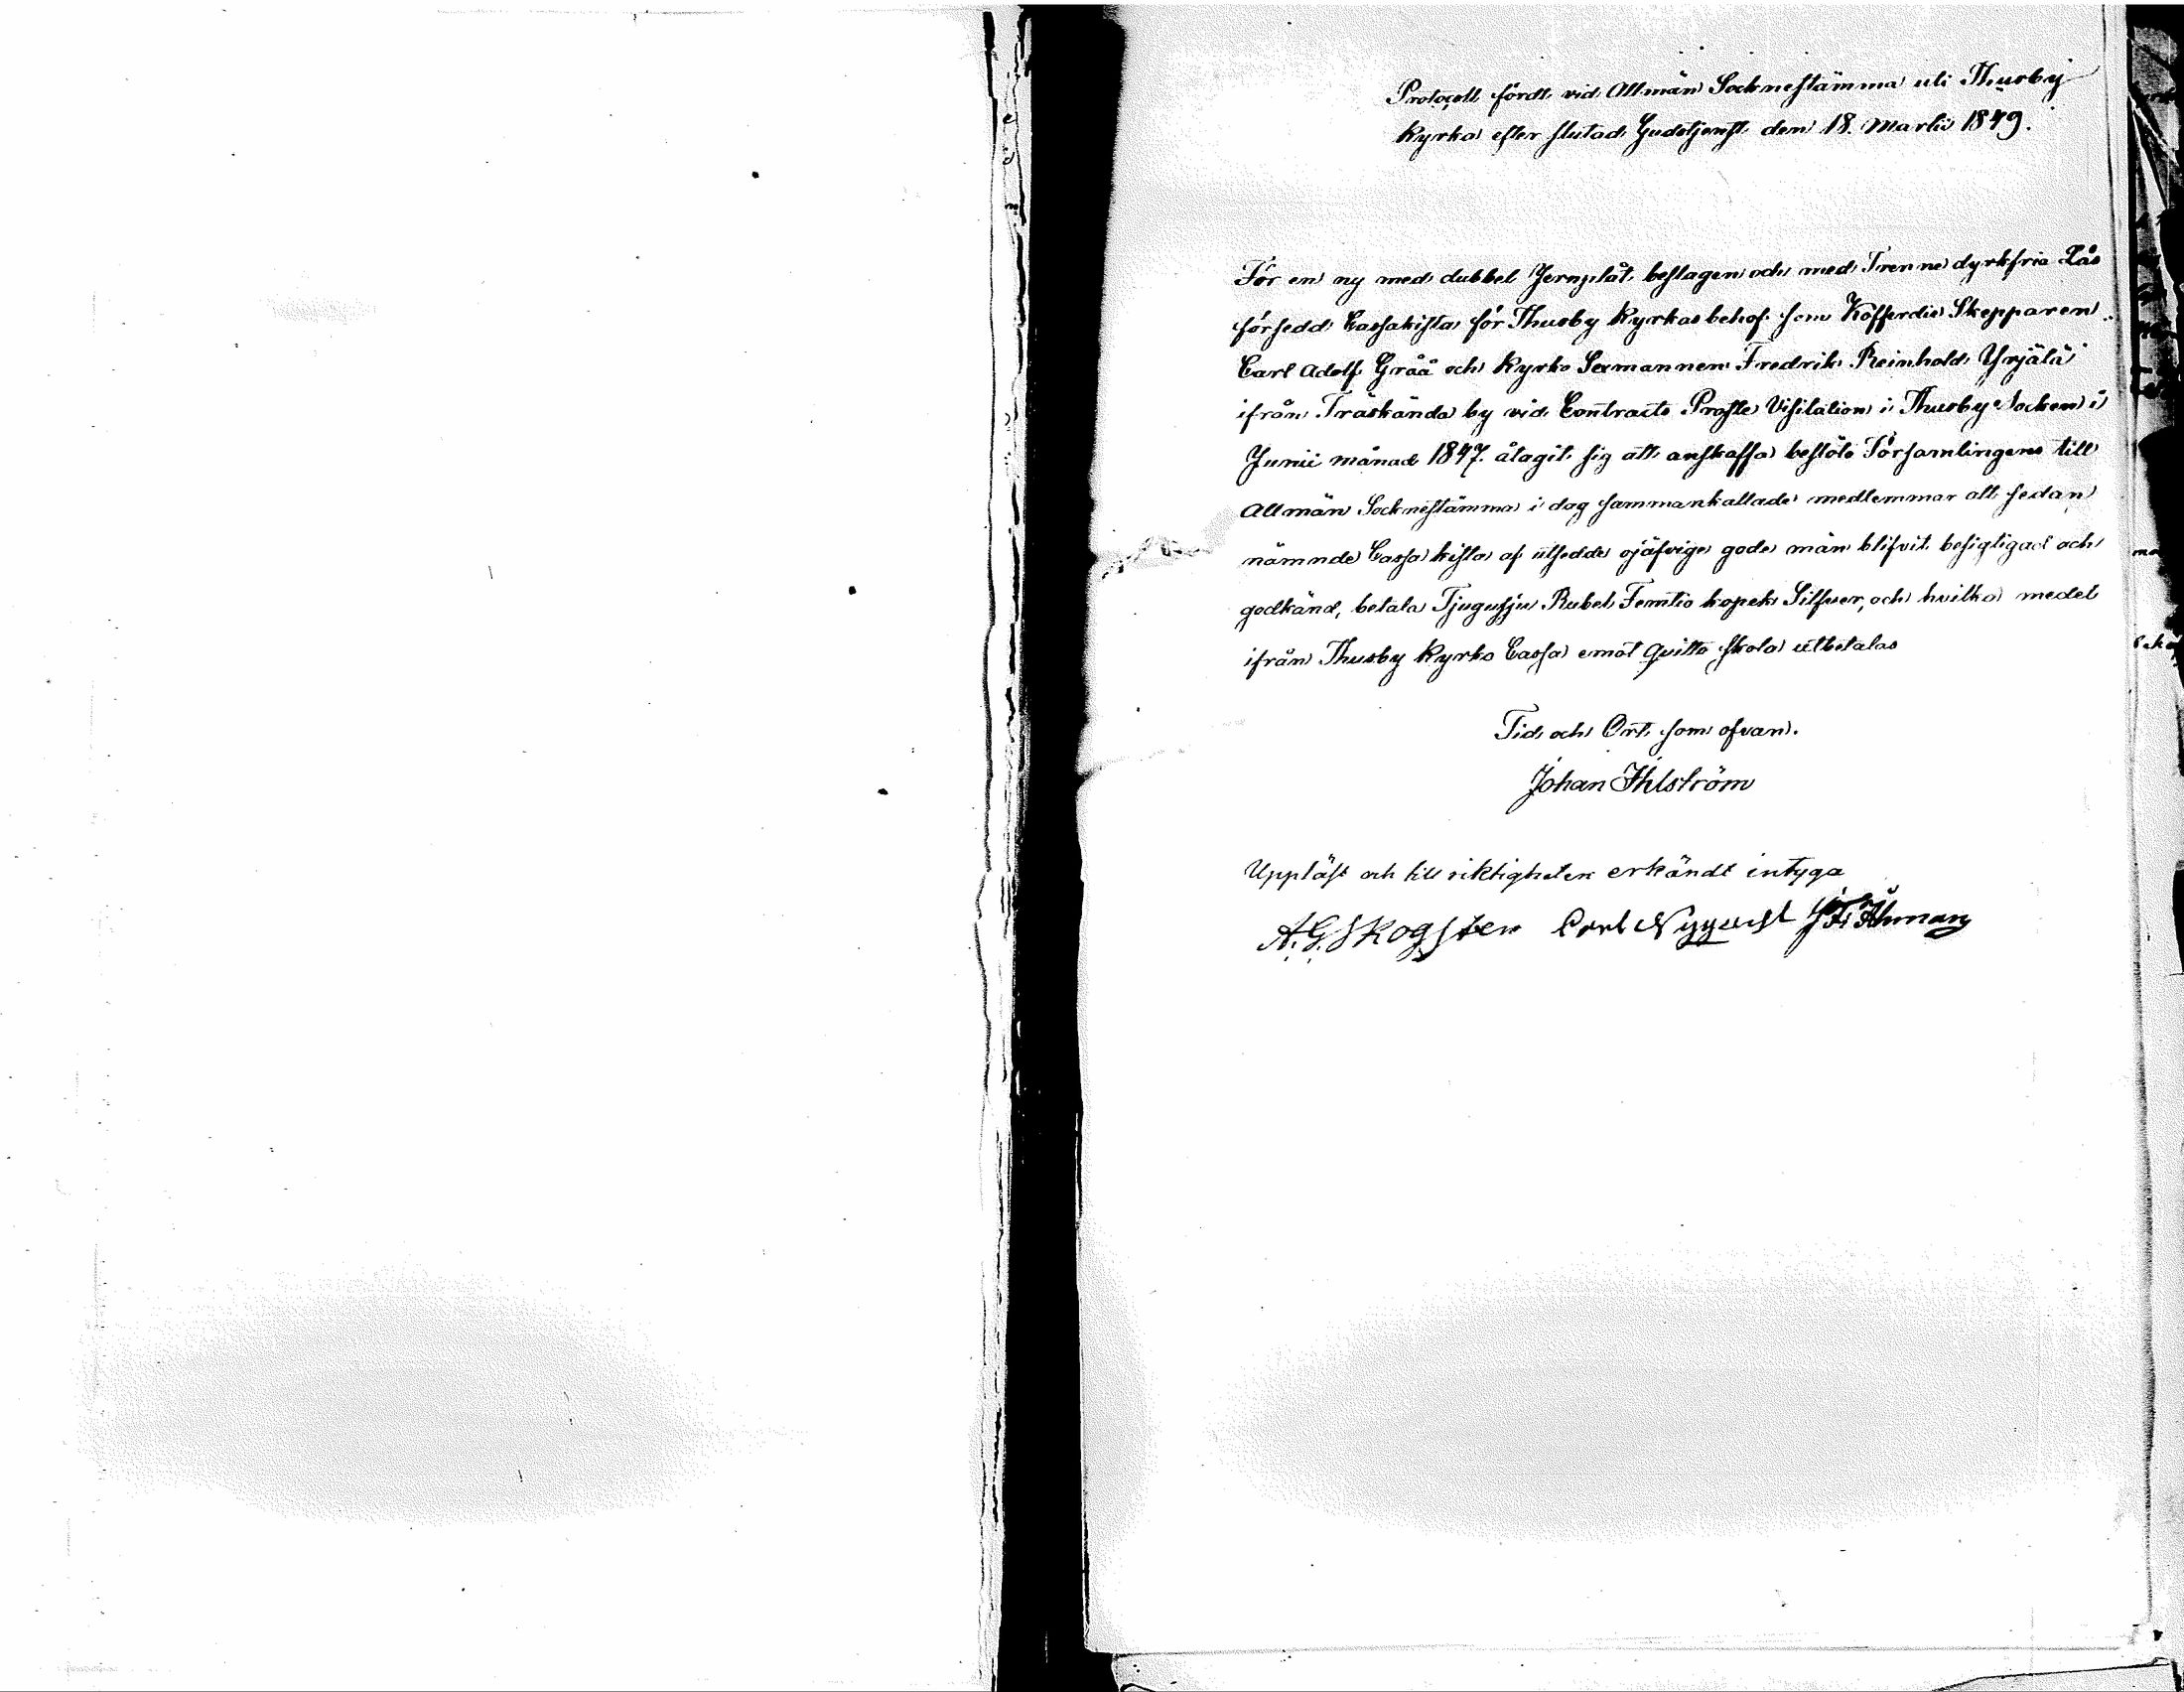 Protocoll fördt vid Allmän Socknestämma uti Thusby
Kyrka efter slutad Gudstjenst den 18. Martii 1849.
För en ny med dubbel Jernplåt beslagen och med Trenne dyrkfria Lås
försedd Cassakista för Thusby Kyrkas behof som Kofferdie Skepparen
Carl Adolf Gråå och Kyrko Sexmannen Fredrik Reinhold Yrjälä
ifrån Träskända by vid Contracts Prosts Visitation i Thusby Socken i
Junii månad 1847. åtagit sig att anskaffa beslöto Församlingens till
Allmän Socknestämma i dag sammankallade medlemmar att sedan
nämnde Cassa kista af utsedde ojäfvige gode män blifvit besigtigad och
godkänd, betala Tjugusju Rubel Femtio kopek Silfver, och hvilka medel
ifrån Thusby Kyrko Cassa emot Quitto skola utbetalas
Tid och Ort som ofvan.
Johan Ihlström
Uppläst och till riktigheten erkändt intyga
A.G. Skogster Carl Nyqvist